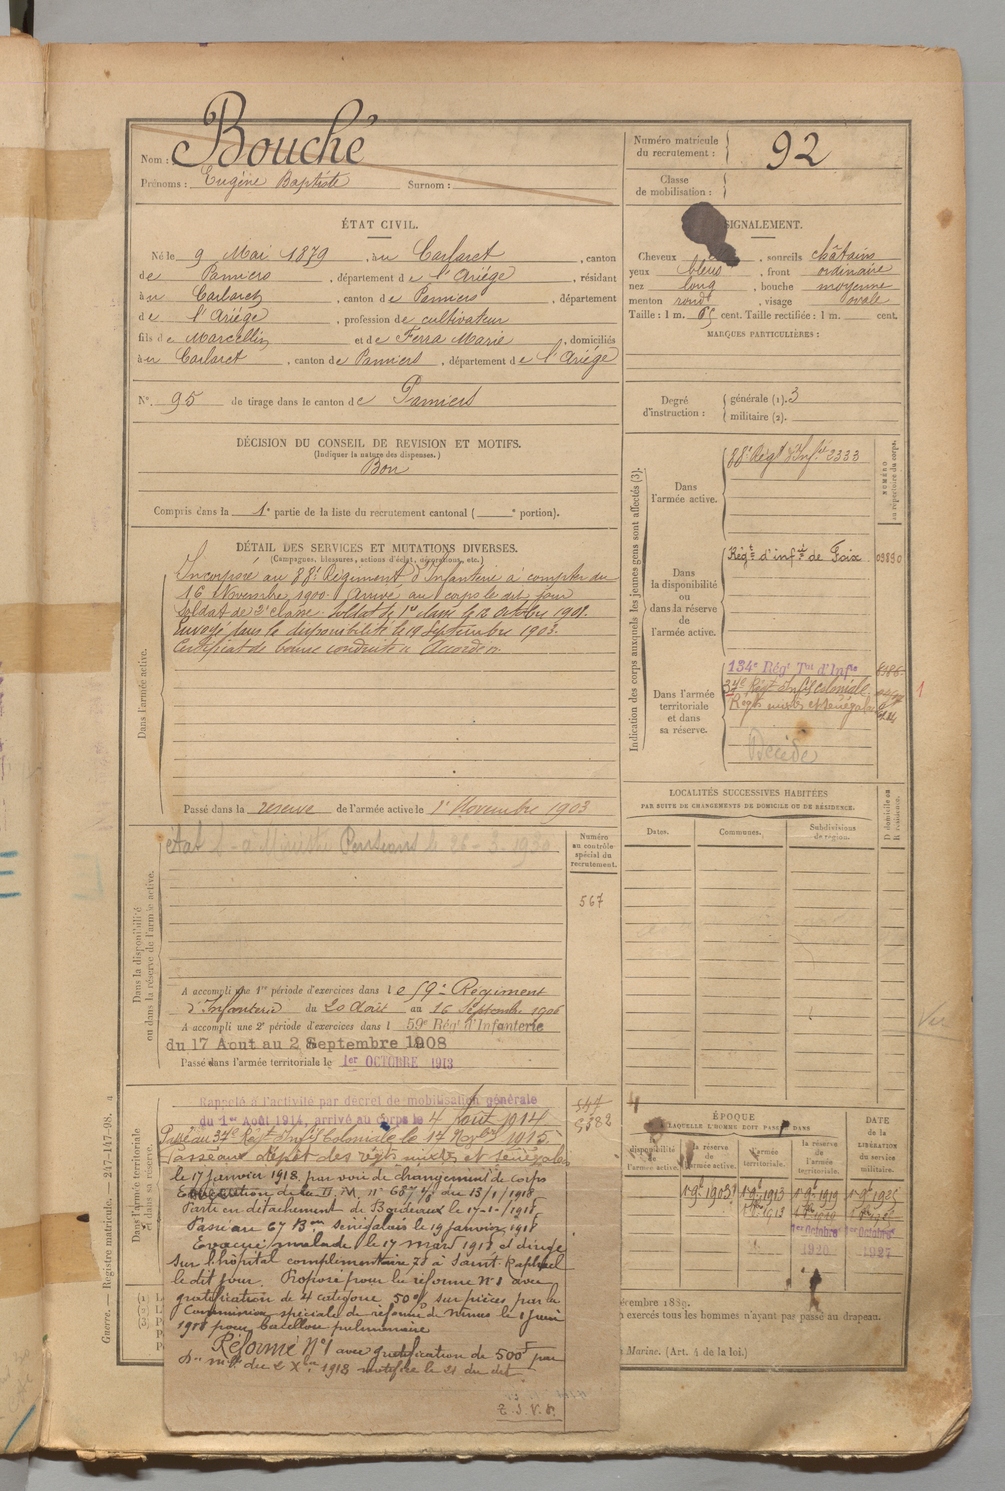 Nom : Bouché
Prénoms : Eugène Baptiste Surnom :
Numéro matricule du recrutement : 92
Classe de mobilisation :
ÉTAT CIVIL.
Né le 9 Mai 1879, à Carlaret, canton
de Pamiers, département de l'Ariége, résidant
à Carlaret, canton de Pamiers, département
de l'Ariége, profession de cultivateur
fils de Marcellin et de Ferra Marie, domiciliés
à Carlaret, canton de Pamiers, département de l'Ariége
N°. 95 de tirage dans le canton de Pamiers
SIGNALEMENT.
Cheveux , sourcils châtains
yeux bleus, front ordinaire
nez long, bouche moyenne
menton rond, visage ovale
Taille : 1 m. 65 cent. Taille rectifiée : 1 m. cent.
MARQUES PARTICULIÈRES :
Degré d'instruction : générale (1). 3
militaire (2).
DÉCISION DU CONSEIL DE REVISION ET MOTIFS.
(Indiquer la nature des dispenses.)
Bon
Compris dans la 1e partie de la liste du recrutement cantonal ( e portion).
DÉTAIL DES SERVICES ET MUTATIONS DIVERSES.
(Campagnes, blessures, actions d'éclat, décorations, etc.)
Dans l'armée active.
Incorporé au 88e Régiment d'Infanterie à compter du
16 Novembre 1900. Arrivé au corps le dit jour
Soldat de 2e classe. Soldat de 1re classe le 12 octobre 1901.
Envoyé dans la disponibilité le 19 Septembre 1903.
Certificat de bonne conduite « Accordé ».
Passé dans la réserve de l'armée active le 1er Novembre 1903
Indication des corps auxquels les jeunes gens sont affectés (3).
NUMÉRO au répertoire du corps.
Dans l'armée active.
88e Régt d'Infie 2333
Dans la disponibilité ou dans la réserve de l'armée active.
Régt d'infie de Foix 03890
Dans l'armée territoriale et dans sa réserve.
134e Régt Tal d'Infie
34e Régt Infie Coloniale
Régts mixtes et Sénégalais
Décédé
LOCALITÉS SUCCESSIVES HABITÉES
PAR SUITE DE CHANGEMENTS DE DOMICILE OU DE RÉSIDENCE.
Dates. Communes. Subdivisions de région. D domicile ou R résidence.
Dans la disponibilité ou dans la réserve de l'armée active.
Numéro au contrôle spécial du recrutement.
567
A accompli une 1re période d'exercices dans le 59e Régiment
d'Infanterie du 20 Août au 16 Septembre 1906
A accompli une 2e période d'exercices dans l 59e Rég' d'Infanterie
du 17 Aout au 2 Septembre 1908
Passé dans l'armée territoriale le 1er OCTOBRE 1913
Dans l'armée territoriale et dans sa réserve.
Rappelé à l'activité par décret de mobilisation générale
du 1er Août 1914, arrivé au corps le 4 Août 1914
Passé au 34e Régt Infie Coloniale le 17 Novbre 1915.
Passé au dépôt des régts mixtes et sénégalais
le 17 janvier 1918 par voie de changement de corps
Exécution de la D. M. n° du 13/1/1918
Parti en détachement de Bordeaux le 17-1-1918
Passé au 67 Bon sénégalais le 19 janvier 1918
Evacué malade le 17 mars 1918 et dirigé
sur l'hôpital complémentaire à Saint-Raphael
le dit jour. Proposé pour la réforme n°1 avec
gratification de 4 catégorie 50% sur pièces par la
Commission spéciale de réforme de Nîmes le 1 juin
1918 pour bacillose pulmonaire
Réformé N°1 avec gratification de 500f par
Don mlle du 2 Xbre 1918 notifiée le 21 du dit
ÉPOQUE
À LAQUELLE L'HOMME DOIT PASSER DANS
la disponibilité de l'armée active. la réserve de l'armée active. l'armée territoriale. la réserve de l'armée territoriale.
DATE de la LIBÉRATION du service militaire.
1er 9bre 1903 1er 8bre 1913 1er 8bre 1919 1er 8bre 1925
1er Octobre 1920 1er Octobre 1927
écembre 1889.
n exercés tous les hommes n'ayant pas passé au drapeau.
Marine. (Art. 4 de la loi.)
Guerre. — Registre matricule. — 247-147-98.